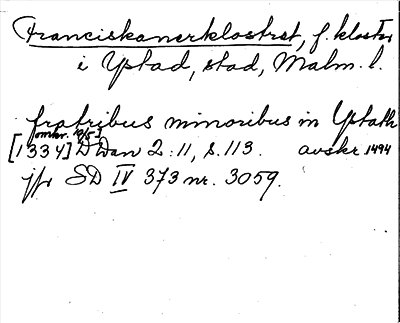 Franciskanerklostret, f. kloster
i Ystad, stad, Malm. l.
fratribus minoribus in Ystath
[omkr. 19/5]
[1334] DDan 2:11, s. 113. avskr 1494
jfr SD IV 373 nr. 3059.